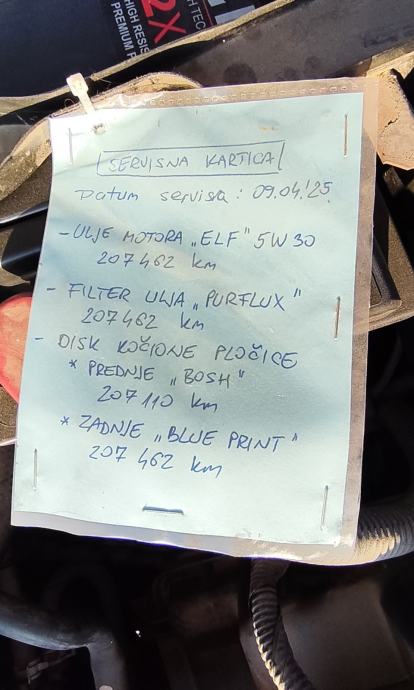 2X
HIGH RESIS
PREMIUM P
H TEC
SERVISNA KARTICA
Datum servisa: 09.04.'25.
- ULJE MOTORA „ELF" 5W30
207462 km
- FILTER ULJA „PURFLUX"
207462 km
- DISK KOČIONE PLOČICE
* PREDNJE „BOSH"
207110 km
* ZADNJE „BLUE PRINT"
207462 km